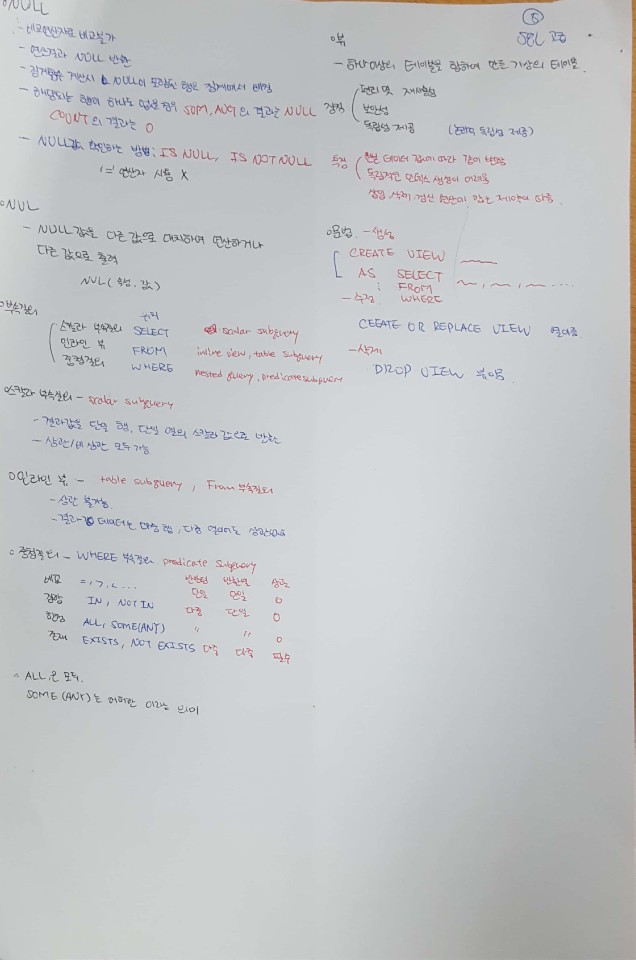 ○NULL
- 비교연산자로 비교불가
- 연산결과 NULL 반환
- 집계함수 계산시 NULL이 포함된 행은 집계에서 배제
- 해당되는 행이 하나도 없을 경우 SUM, AVG의 결과는 NULL
COUNT의 결과는 0
- NULL값 확인하는 방법: IS NULL, IS NOT NULL
'=' 연산자 사용 X
○NVL
- NULL 값을 다른 값으로 대치하여 연산하거나
다른 값으로 출력
NVL(속성, 값)
○부속질의
스칼라 부속질의 SELECT scalar subquery
인라인 뷰 FROM inline view, table subquery
중첩질의 WHERE nested query, predicate subquery
○스칼라 부속질의 - scalar subquery
- 결과값을 단일 행, 단일 열의 스칼라 값으로 반환
- 상관/비상관 모두가능
○인라인 뷰 - table subquery, From 부속질의
- 상관 불가능
- 결과 데이터는 다중 행, 다중 열이어도 상관없음
○ 중첩질의 - WHERE 부속질의 predicate subquery
반환행 반환열 상관
비교 =, >, <, ... 단일 단일 0
집합 IN, NOT IN 다중 단일 0
한정 ALL, SOME(ANY) " " 0
존재 EXISTS, NOT EXISTS 다중 다중 필수
○ ALL은 모두,
SOME(ANY)는 어떠한 이라는 의미
⑤
SQL 고급
○뷰
- 하나 이상의 테이블을 합하여 만든 가상의 테이블
장점 편리 및 재사용성
보안성
독립성 제공 (논리적 독립성 제공)
특징 원본 데이터 값에 따라 같이 변함
독립적인 인덱스 생성이 어려움
삽입 삭제 갱신 연산에 많은 제약이 따름.
○문법 - 생성
CREATE VIEW
AS SELECT
FROM
WHERE
- 수정
CREATE OR REPLACE VIEW
- 삭제
DROP VIEW 뷰이름